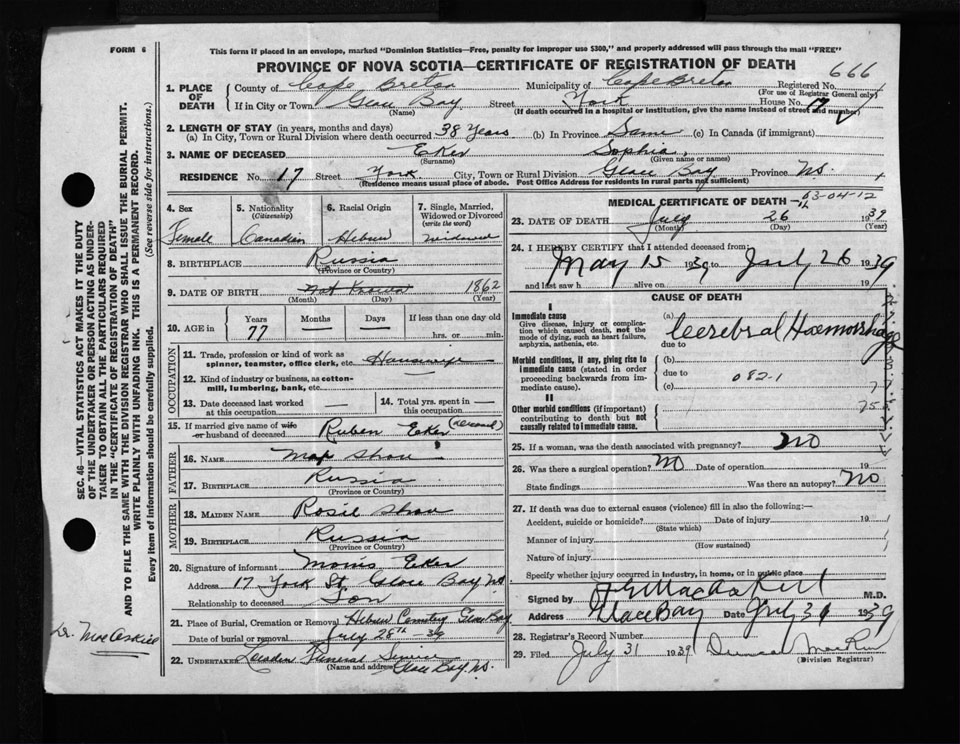 FORM 6
This form if placed in an envelope, marked "Dominion Statistics—Free, penalty for improper use $300," and properly addressed will pass through the mail "FREE"
PROVINCE OF NOVA SCOTIA—CERTIFICATE OF REGISTRATION OF DEATH
666
1. PLACE OF DEATH
County of Cape Breton Municipality of Cape Breton Registered No.
(For use of Registrar General only)
If in City or Town Glace Bay Street York House No. 17
(Name) (If death occurred in a hospital or institution, give the name instead of street and number)
2. LENGTH OF STAY (in years, months and days)
(a) In City, Town or Rural Division where death occurred 38 Years (b) In Province Same (c) In Canada (if immigrant)
3. NAME OF DECEASED Eker Sophia
(Surname) (Given name or names)
RESIDENCE No. 17 Street York City, Town or Rural Division Glace Bay Province NS.
(Residence means usual place of abode. Post Office Address for residents in rural parts not sufficient)
4. Sex 5. Nationality (Citizenship) 6. Racial Origin 7. Single, Married, Widowed or Divorced (write the word)
Female Canadian Hebrew Widow
8. BIRTHPLACE Russia
(Province or Country)
9. DATE OF BIRTH Not Known 1862
(Month) (Day) (Year)
10. AGE in Years Months Days If less than one day
77 — — hrs. or min.
OCCUPATION
11. Trade, profession or kind of work as spinner, teamster, office clerk, etc. Housewife
12. Kind of industry or business, as cotton-mill, lumbering, bank, etc. —
13. Date deceased last worked at this occupation — 14. Total yrs. spent in this occupation —
15. If married give name of wife or husband of deceased Ruben Eker
FATHER
16. NAME Max
17. BIRTHPLACE Russia
(Province or Country)
MOTHER
18. MAIDEN NAME Rosie
19. BIRTHPLACE Russia
(Province or Country)
20. Signature of informant Morris Eker
Address 17 York St. Glace Bay NS
Relationship to deceased Son
21. Place of Burial, Cremation or Removal Hebrew Cemetery Glace Bay
Date of burial or removal July 28th - 39
22. UNDERTAKER Funeral Service
(Name and address) Glace Bay, NS.
MEDICAL CERTIFICATE OF DEATH
03-04-12
23. DATE OF DEATH July 26 1939
(Month) (Day) (Year)
24. I HEREBY CERTIFY that I attended deceased from:
May 15 1939 to July 26 1939
and last saw h alive on 19
CAUSE OF DEATH
I
Immediate cause
Give disease, injury or complication which caused death, not the mode of dying, such as heart failure, asphyxia, asthenia, etc.
(a) Cerebral Haemorrhage
due to
Morbid conditions, if any, giving rise to immediate cause (stated in order proceeding backwards from immediate cause).
(b)
due to
(c) 082-1
II
Other morbid conditions (if important) contributing to death but not causally related to immediate cause.
25. If a woman, was the death associated with pregnancy? NO
26. Was there a surgical operation? NO Date of operation 19
State findings Was there an autopsy? NO
27. If death was due to external causes (violence) fill in also the following:—
Accident, suicide or homicide? Date of injury 19
(State which)
Manner of injury
(How sustained)
Nature of injury
Specify whether injury occurred in industry, in home, or in public place
Signed by M.D.
Address Glace Bay Date July 31 1939
28. Registrar's Record Number
29. Filed July 31 1939 Duncan
(Division Registrar)
SEC. 46—VITAL STATISTICS ACT MAKES IT THE DUTY
OF THE UNDERTAKER OR PERSON ACTING AS UNDER-
TAKER TO OBTAIN ALL THE PARTICULARS REQUIRED
IN THE "CERTIFICATE OF REGISTRATION OF DEATH"
AND TO FILE THE SAME WITH THE DIVISION REGISTRAR WHO SHALL ISSUE THE BURIAL PERMIT.
WRITE PLAINLY WITH UNFADING INK. THIS IS A PERMANENT RECORD.
Every item of information should be carefully supplied. (See reverse side for instructions.)
Dr. MacAskill